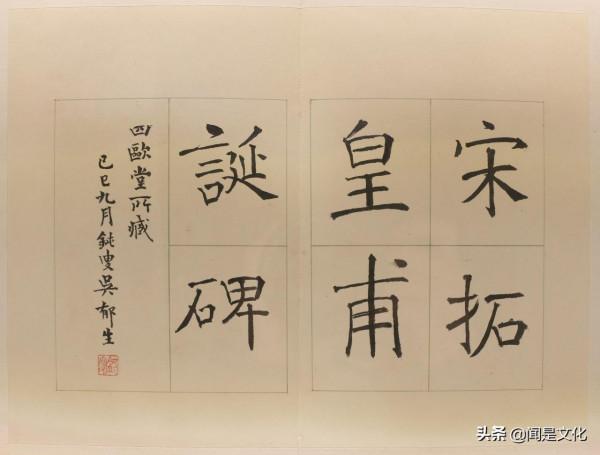 宋拓
皇甫
誕碑
四歐堂所藏
己巳九月鈍叟吳郁生
头条 @闻是文化